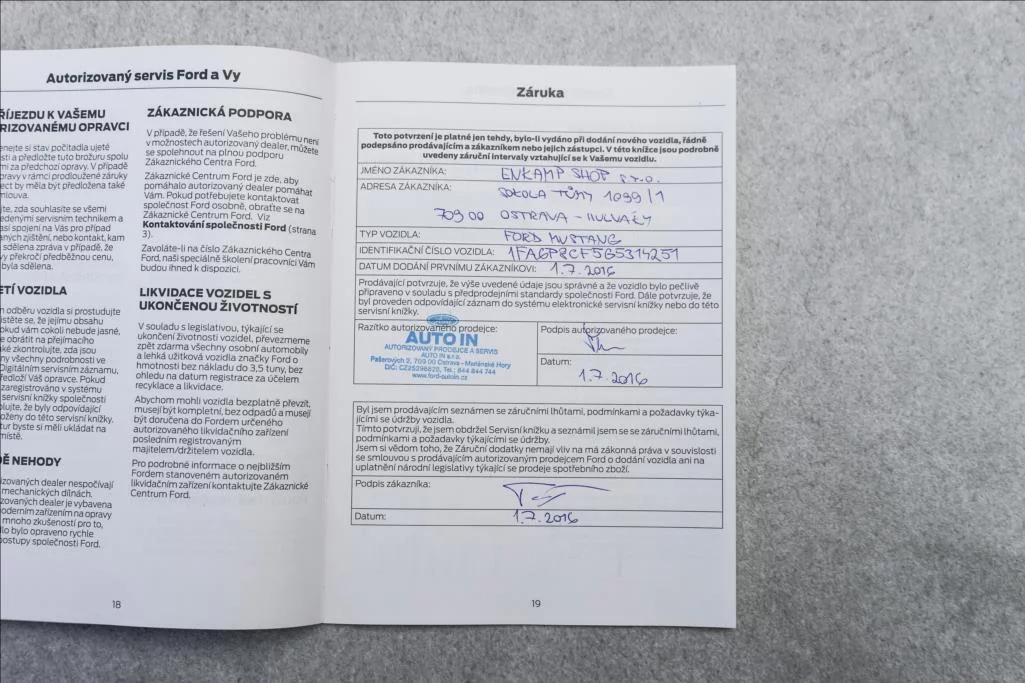 Autorizovaný servis Ford a Vy
ŘÍJEZDU K VAŠEMU
RIZOVANÉMU OPRAVCI
enejte si stav počítadla ujeté
sti a předložte tuto brožuru spolu
mi za předchozí opravy. V případě
pravy v rámci prodloužené záruky
ect by měla být předložena také
mlouva.
jte, zda souhlasíte se všemi
edenými servisním technikem a
así spojení na Vás pro případ
aných zjištění, nebo kontakt, kam
sdělena zpráva v případě, že
vy překročí předběžnou cenu,
byla sdělena.
ETÍ VOZIDLA
odběru vozidla si prostudujte
istěte se, že jejímu obsahu
okud vám cokoli nebude jasné,
e obrátit na přejímacího
ké zkontrolujte, zda jsou
ny všechny podrobnosti ve
Digitálním servisním záznamu,
ředloží Váš opravce. Pokud
zaregistrováno v systému
servisní knížky společnosti
olujte, že byly odpovídající
oženy do této servisní knížky.
tur byste si měli ukládat na
místě.
DĚ NEHODY
izovaných dealer nespočívají
mechanických dílnách.
zovaných dealer je vybavena
oderním zařízením na opravy
mnoho zkušeností pro to,
lo bylo opraveno rychle
postupy společnosti Ford.
ZÁKAZNICKÁ PODPORA
V případě, že řešení Vašeho problému není
v možnostech autorizovaný dealer, můžete
se spolehnout na plnou podporu
Zákaznického Centra Ford.
Zákaznické Centrum Ford je zde, aby
pomáhalo autorizovaný dealer pomáhat
Vám. Pokud potřebujete kontaktovat
společnost Ford osobně, obraťte se na
Zákaznické Centrum Ford. Viz
Kontaktování společnosti Ford (strana
3).
Zavoláte-li na číslo Zákaznického Centra
Ford, naši speciálně školení pracovníci Vám
budou ihned k dispozici.
LIKVIDACE VOZIDEL S
UKONČENOU ŽIVOTNOSTÍ
V souladu s legislativou, týkající se
ukončení životnosti vozidel, převezmeme
zpět zdarma všechny osobní automobily
a lehká užitková vozidla značky Ford o
hmotnosti bez nákladu do 3,5 tuny, bez
ohledu na datum registrace za účelem
recyklace a likvidace.
Abychom mohli vozidla bezplatně převzít,
musejí být kompletní, bez odpadů a musejí
být doručena do Fordem určeného
autorizovaného likvidačního zařízení
posledním registrovaným
majitelem/držitelem vozidla.
Pro podrobné informace o nejbližším
Fordem stanoveném autorizovaném
likvidačním zařízení kontaktujte Zákaznické
Centrum Ford.
18
Záruka
Toto potvrzení je platné jen tehdy, bylo-li vydáno při dodání nového vozidla, řádně
podepsáno prodávajícím a zákazníkem nebo jejich zástupci. V této knížce jsou podrobně
uvedeny záruční intervaly vztahující se k Vašemu vozidlu.
JMÉNO ZÁKAZNÍKA: ENKAMP SHOP s.r.o.
ADRESA ZÁKAZNÍKA: SOKOLA TŮMY 1099/1
709 00 OSTRAVA - HULVÁKY
TYP VOZIDLA: FORD MUSTANG
IDENTIFIKAČNÍ ČÍSLO VOZIDLA: 1FA6P8CF5G5314251
DATUM DODÁNÍ PRVNÍMU ZÁKAZNÍKOVI: 1.7.2016
Prodávající potvrzuje, že výše uvedené údaje jsou správné a že vozidlo bylo pečlivě
připraveno v souladu s předprodejními standardy společnosti Ford. Dále potvrzuje, že
byl proveden odpovídající záznam do systému elektronické servisní knížky nebo do této
servisní knížky.
Razítko autorizovaného prodejce:
AUTO IN
AUTORIZOVANÝ PRODEJCE A SERVIS
AUTO IN s.r.o.
Pašerových 2, 709 00 Ostrava - Mariánské Hory
DIČ: CZ25298828, Tel.: 844 844 744
www.ford-autoin.cz
Podpis autorizovaného prodejce:
Datum:
1.7.2016
Byl jsem prodávajícím seznámen se záručními lhůtami, podmínkami a požadavky týka-
jícími se údržby vozidla.
Tímto potvrzuji, že jsem obdržel Servisní knížku a seznámil jsem se se záručními lhůtami,
podmínkami a požadavky týkajícími se údržby.
Jsem si vědom toho, že Záruční dodatky nemají vliv na má zákonná práva v souvislosti
se smlouvou s prodávajícím autorizovaným prodejcem Ford o dodání vozidla ani na
uplatnění národní legislativy týkající se prodeje spotřebního zboží.
Podpis zákazníka:
Datum: 1.7.2016
19